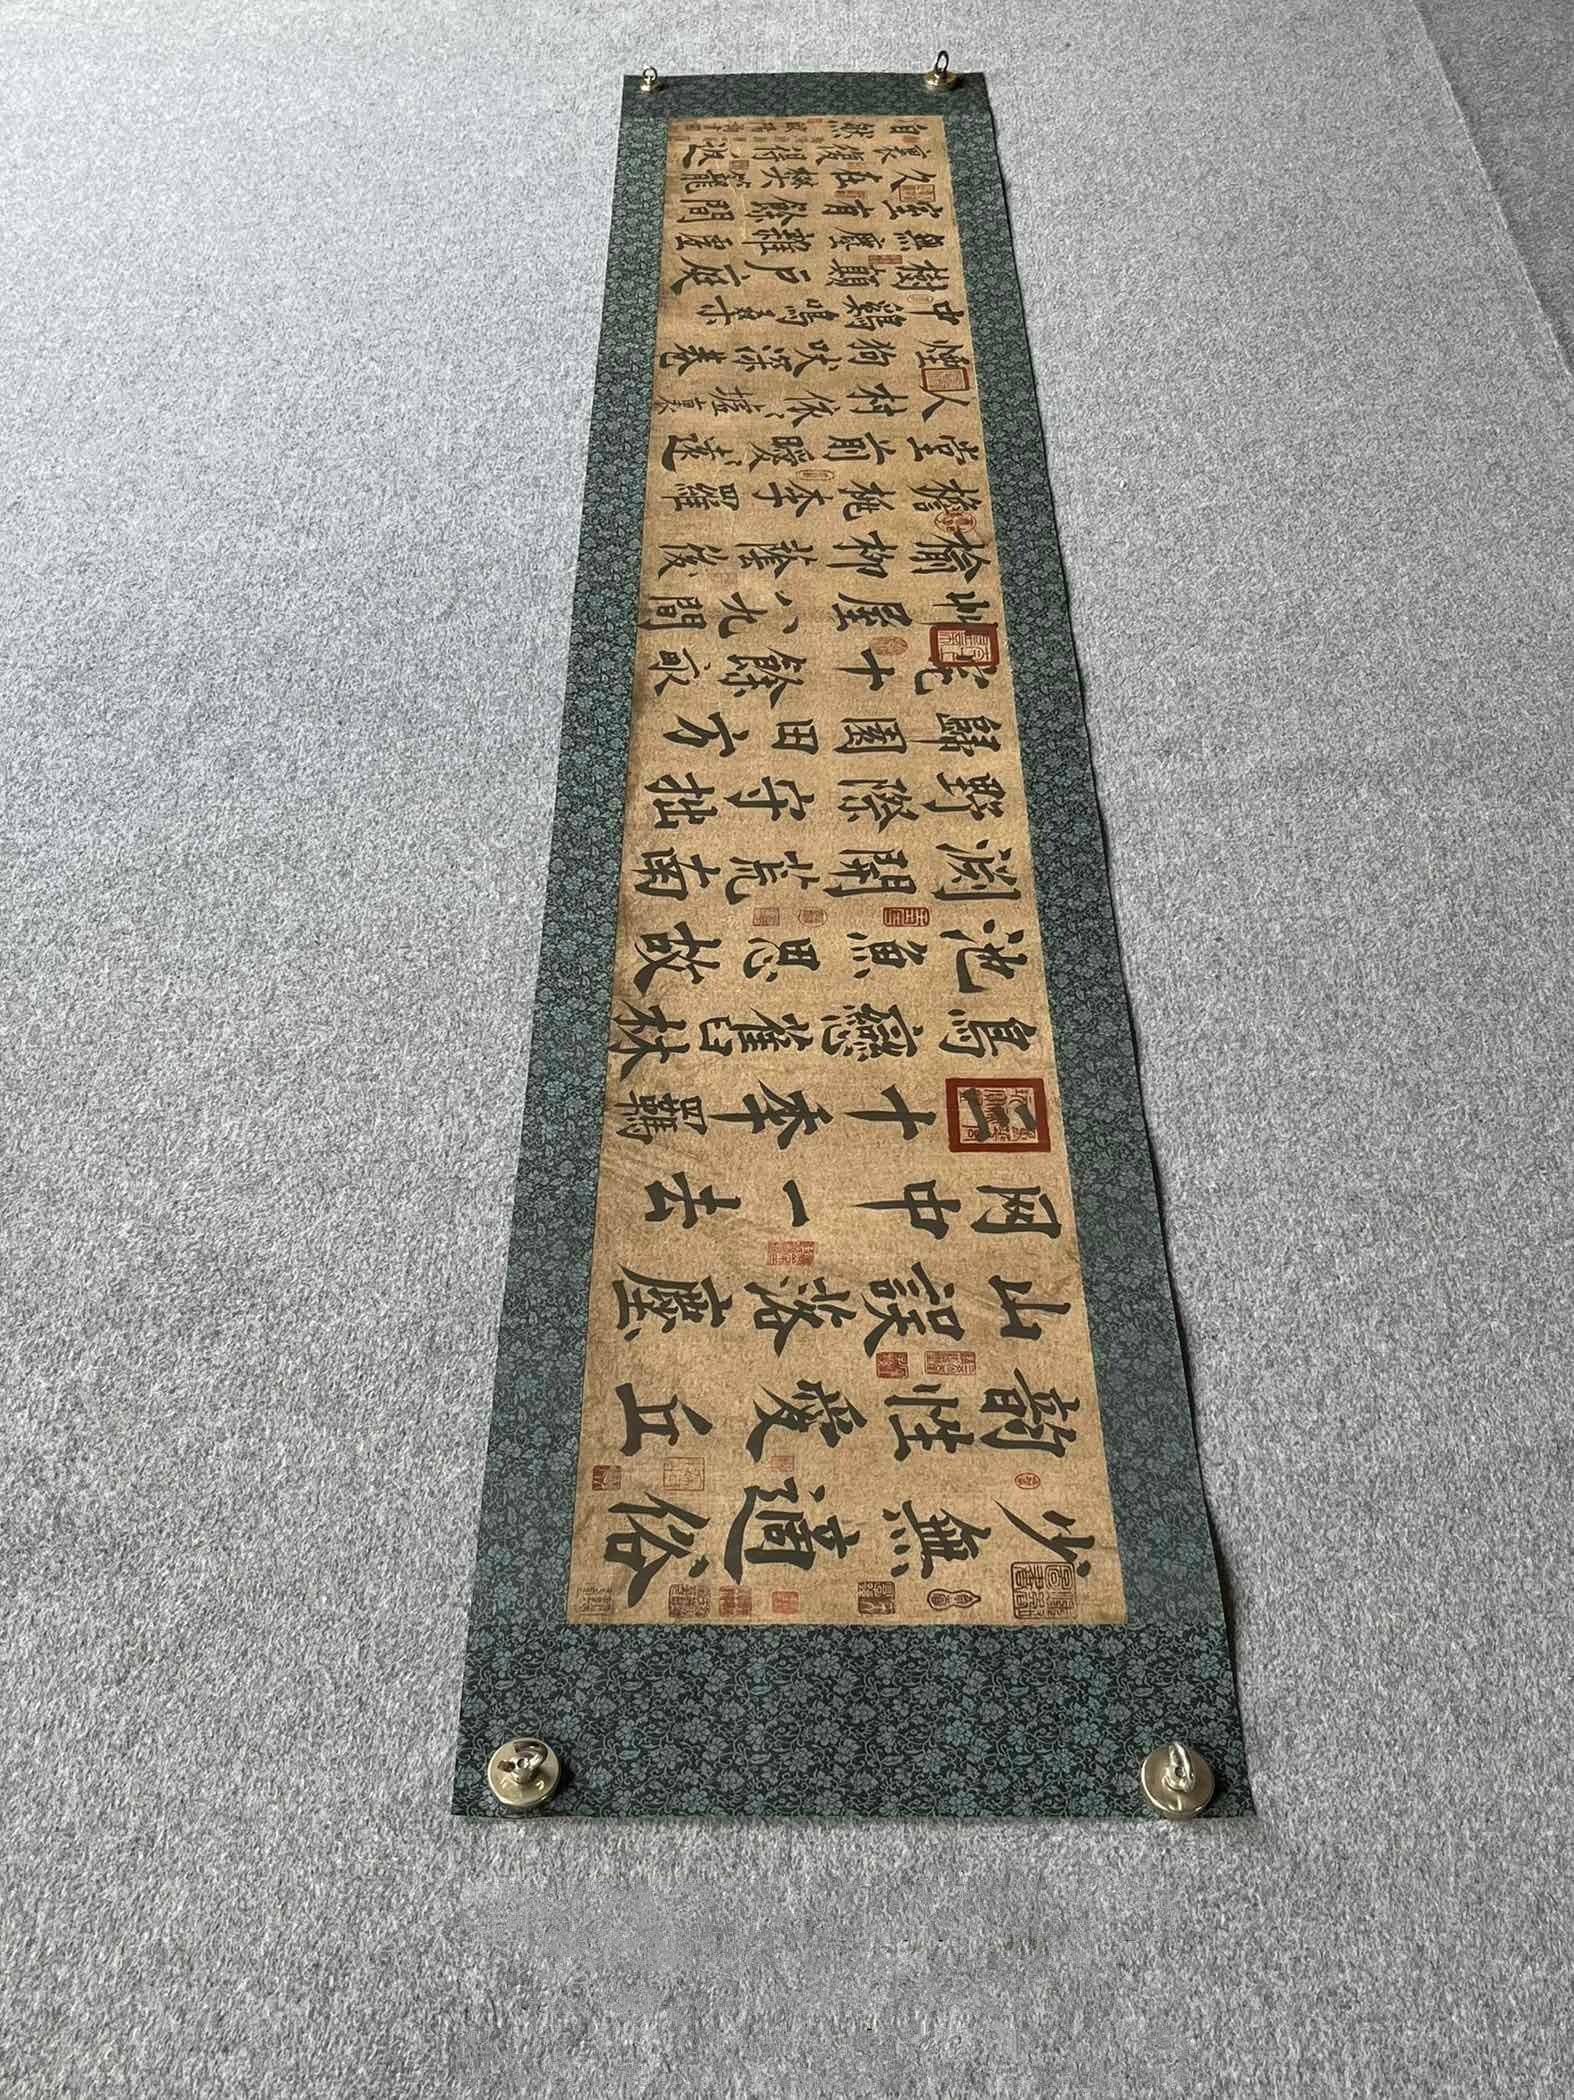 少無適俗
韻性愛丘
山誤落塵
网中一去
二十季羈
鳥戀舊林
池魚思故
渕開荒南
野際守拙
歸園田方
宅十餘畝
艸屋八九間
榆柳蔭後
檐桃李羅
堂前曖遠
人村依〻墟里
煙狗吠深巷
中鷄鳴桑
樹顛戶庭
無塵雜虛
室有餘間
久在樊籠
裏復得返
自然